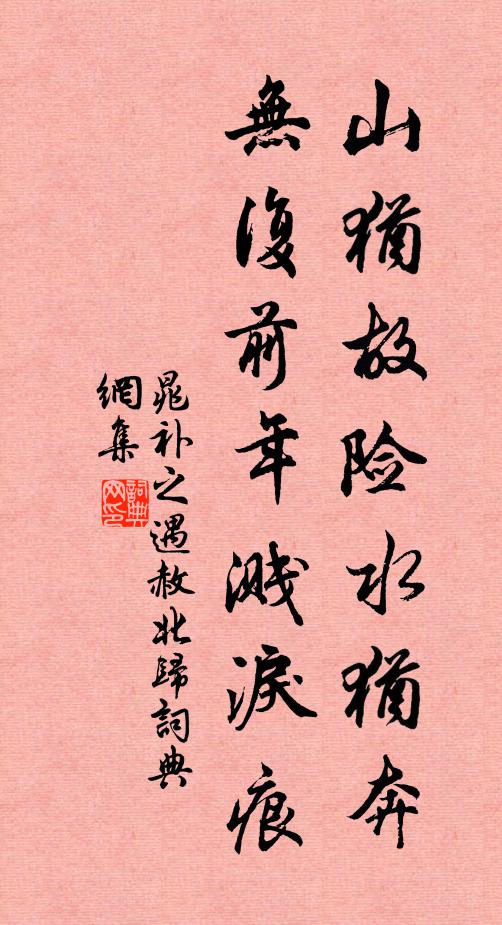 山犹故险水犹奔
無復前年溅淚痕
晁补之遇赦北歸詞典
網集
詞典
网印